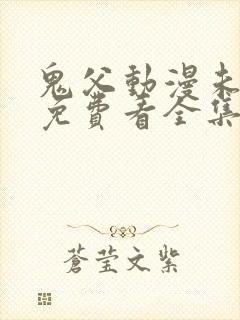 鬼父動漫未
免費看全集
蒼莹文紫